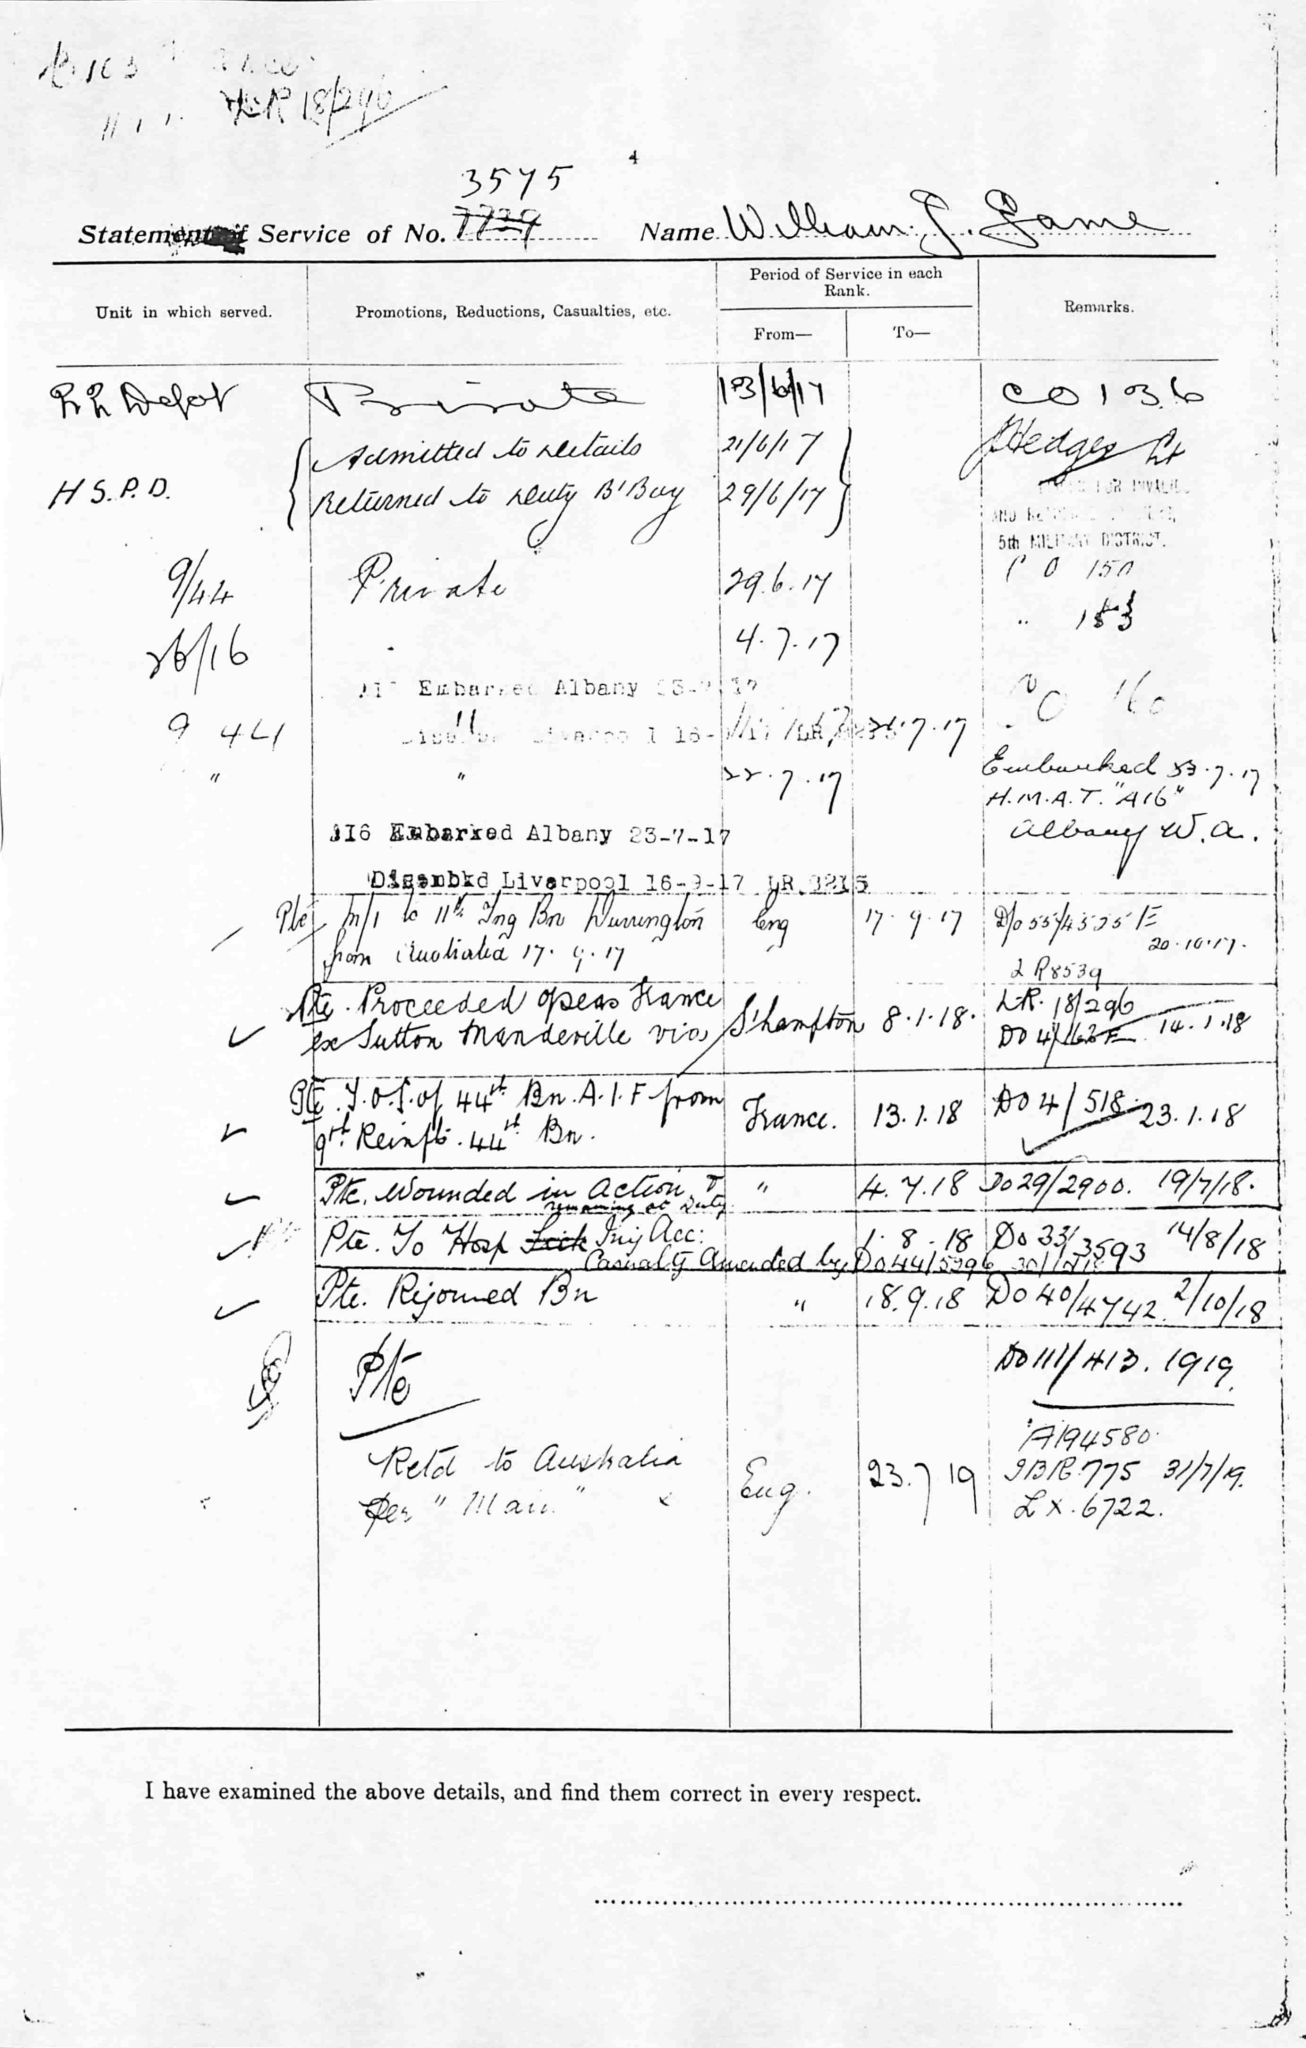 LR 18/296
4
3575
7729
Statement of Service of No. Name William J. Game
Unit in which served.
Promotions, Reductions, Casualties, etc.
Period of Service in each Rank.
From—
To—
Remarks.
Depot Private 13/6/17 CO 136
Admitted to Details 21/6/17 Hedges Lt
H S. P. D. Returned to Duty B'Bay 29/6/17
FOR INVALID
AND
5th MILITARY DISTRICT.
9/44 Private 29.6.17 C O 150
26/16 4.7.17 " 153
Embarked Albany 17 CO 160
9 44 " Liverpool 16- 17 LR 7.17
" " 22.7.17 Embarked 23.7.17
H.M.A.T. "A16"
Albany W.A.
A16 Embarked Albany 23-7-17
Disembkd Liverpool 16-9-17 LR 3215
Pte m/i to 11th Tng Bn Durrington Eng 17.9.17 D/o 55/4525 E
from Australia 17.9.17 20.10.17.
LR8539
Pte. Proceeded o'seas France LR. 18/296
ex Sutton Mandeville via S'hampton 8.1.18. DO 4/ 14.1.18
Pte. T.O.S. of 44th Bn. A.I.F from France. 13.1.18 DO 4/518. 23.1.18
9th Reinfts. 44th Bn.
Pte. Wounded in Action " 4.7.18 Do 29/2900. 19/7/18.
remaining at Duty
Pte. To Hosp Sick Inj Acc: 1.8.18 Do 33/3593 14/8/18
Casualty Amended by Do 44/5296
Pte. Rejoined Bn " 18.9.18 Do 40/4742. 2/10/18
Pte Do 111/413. 1919.
A194580.
Retd to Australia Eng. 23.7.19 IBR.775 31/7/19.
per "Main" LX.6722.
I have examined the above details, and find them correct in every respect.